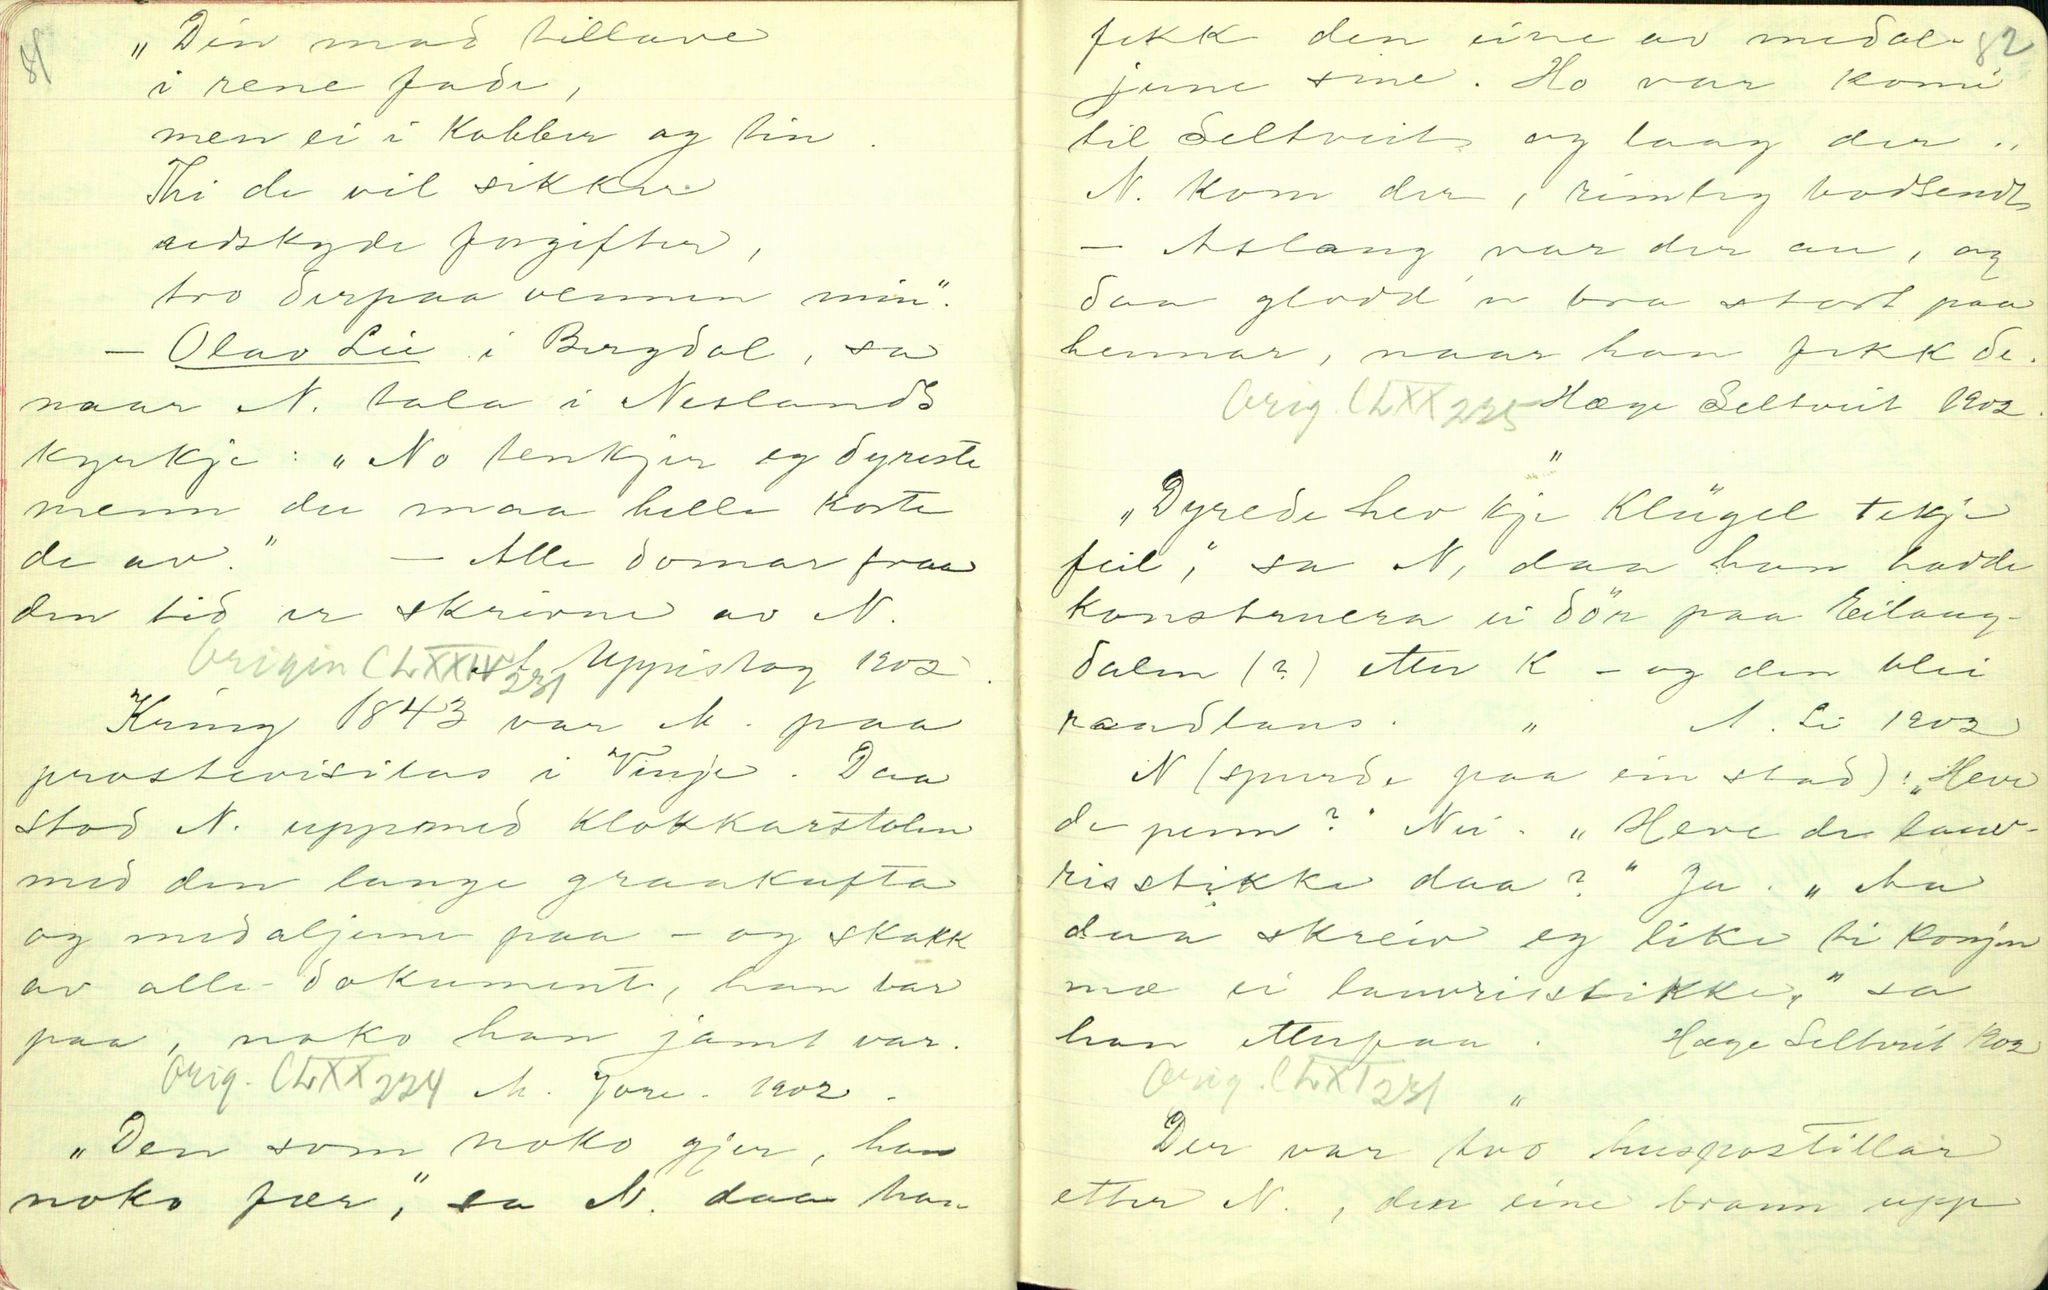 81
„Din mad tillave
i rene fade,
men ei i Kobber og tin.
Thi de vil sikker
edskyde forgifter,
tro derpaa vennen min".
— Olav Lii i Bergdal, sa
naar N. tala i Neslands
kyrkje: „No tenkjer eg dyreste
menn du maa helle korte
de av." — Alle domar fraa
den tid er skrivne av N.
Origin CLXXIV 231 Uppistog 1902.
Kring 1843 var M. paa
prostevisitas i Vinje. Daa
stod N. uppmed Klokkarstolen
med den lange graakufta
og medaljune paa – og skakk
av alle dokument, han bar
paa, noko han jamt var.
Orig. CLXX 224 M. Jore. 1902.
„Den som noko gjer, han
noko fær," sa N. daa han
82
fekk den eine av medal-
june sine. Ho var komi
til Seltveit og laag der..
N. kom der, rimleg bodsendt
— Aslaug var der au, og
daa glodd'n bra stort paa
hennar, naar han fekk de.
Orig. CLXX 225 Hæge Seltveit 1902.
"
„Dyrede hev kje Klügel tekje
feil", sa N, daa han hadde
konstruera ei dör paa Eilaug-
dalen (?) etter K – og den blei
raadlaus. " A. Li 1902
N (spurde paa ein stad): „Heve
de penn?" Nei. „Heve de lauv-
risstikke daa?" Ja. „Aa
daa skreiv eg like ti konjen
mæ ei lauvrisstikke," sa
han ettepaa. Hæge Seltveit 1902
Orig. CLXXI 231 "
Der var tvo huspostillar
etter N., den eine brann upp